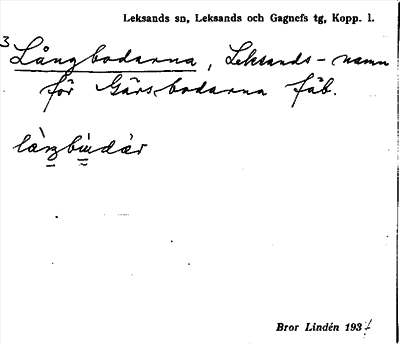 Leksands sn, Leksands och Gagnefs tg, Kopp. l.
3
Långbodarna, Leksands-namn
för Gärsbodarna fäb.
Bror Lindén 193